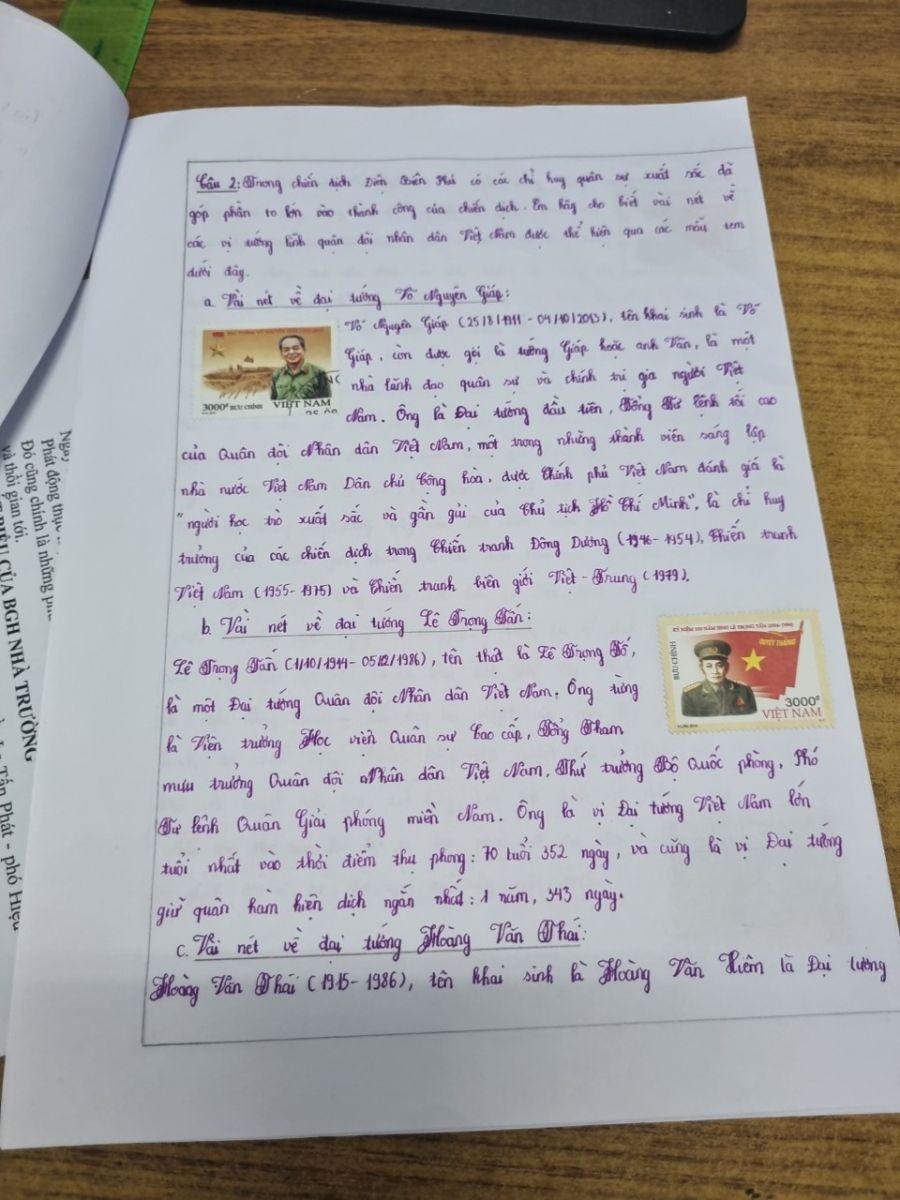 Câu 2: Trong chiến dịch Điện Biên Phủ có các chỉ huy quân sự xuất sắc đã
góp phần to lớn vào thành công của chiến dịch. Em hãy cho biết vài nét về
các vị tướng lĩnh quân đội nhân dân Việt Nam được thể hiện qua các mẫu tem
dưới đây.
a. Vài nét về đại tướng Võ Nguyên Giáp:
3000đ BƯU CHÍNH VIỆT NAM
Võ Nguyên Giáp (25/8/1911 - 04/10/2013), tên khai sinh là Võ
Giáp, còn được gọi là tướng Giáp hoặc anh Văn, là một
nhà lãnh đạo quân sự và chính trị gia người Việt
Nam. Ông là Đại tướng đầu tiên, Tổng Tư lệnh tối cao
của Quân đội Nhân dân Việt Nam, một trong những thành viên sáng lập
nhà nước Việt Nam Dân chủ Cộng hòa, được Chính phủ Việt Nam đánh giá là
"người học trò xuất sắc và gần gũi của Chủ tịch Hồ Chí Minh", là chỉ huy
trưởng của các chiến dịch trong Chiến tranh Đông Dương (1946-1954), Chiến tranh
Việt Nam (1955-1975) và Chiến tranh biên giới Việt-Trung (1979).
b. Vài nét về đại tướng Lê Trọng Tấn:
KỶ NIỆM 100 NĂM SINH LÊ TRỌNG TẤN (1914-1986)
QUYẾT THẮNG
BƯU CHÍNH
3000đ
VIỆT NAM
Lê Trọng Tấn (1/10/1914 - 05/12/1986), tên thật là Lê Trọng Tố,
là một Đại tướng Quân đội Nhân dân Việt Nam. Ông từng
là Viện trưởng Học viện Quân sự Cao cấp, Tổng Tham
mưu trưởng Quân đội Nhân dân Việt Nam, Thứ trưởng Bộ Quốc phòng, Phó
Tư lệnh Quân Giải phóng miền Nam. Ông là vị Đại tướng Việt Nam lớn
tuổi nhất vào thời điểm thụ phong: 70 tuổi 352 ngày, và cũng là vị Đại tướng
giữ quân hàm hiện dịch ngắn nhất: 1 năm, 343 ngày.
c. Vài nét về đại tướng Hoàng Văn Thái:
Hoàng Văn Thái (1915-1986), tên khai sinh là Hoàng Văn Xiêm là Đại tướng
Phát động thực
Đó cũng chính là những
và thời gian tới.
CỦA BGH NHÀ TRƯỜNG
Tấn Phát - phó Hiệu